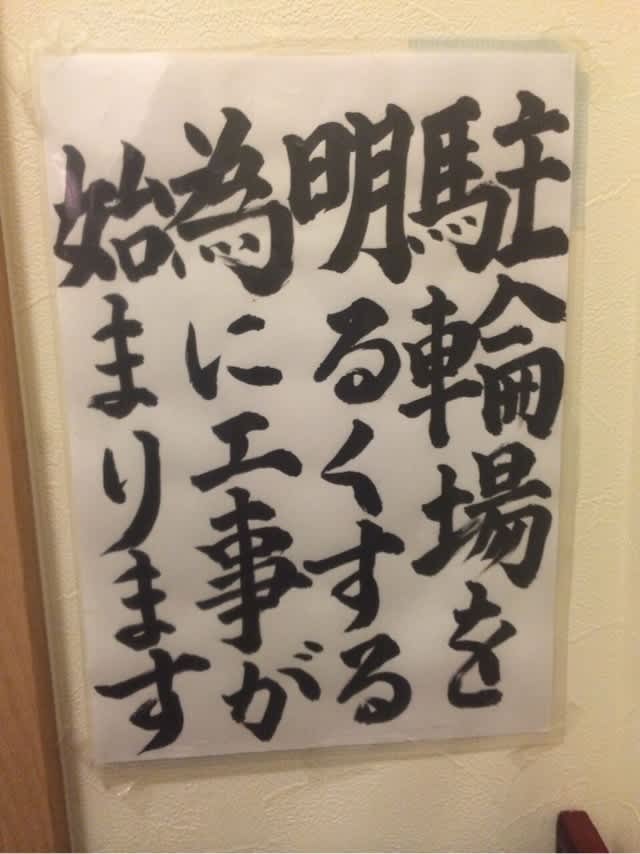 駐輪場を
明るくする
為に工事が
始まります